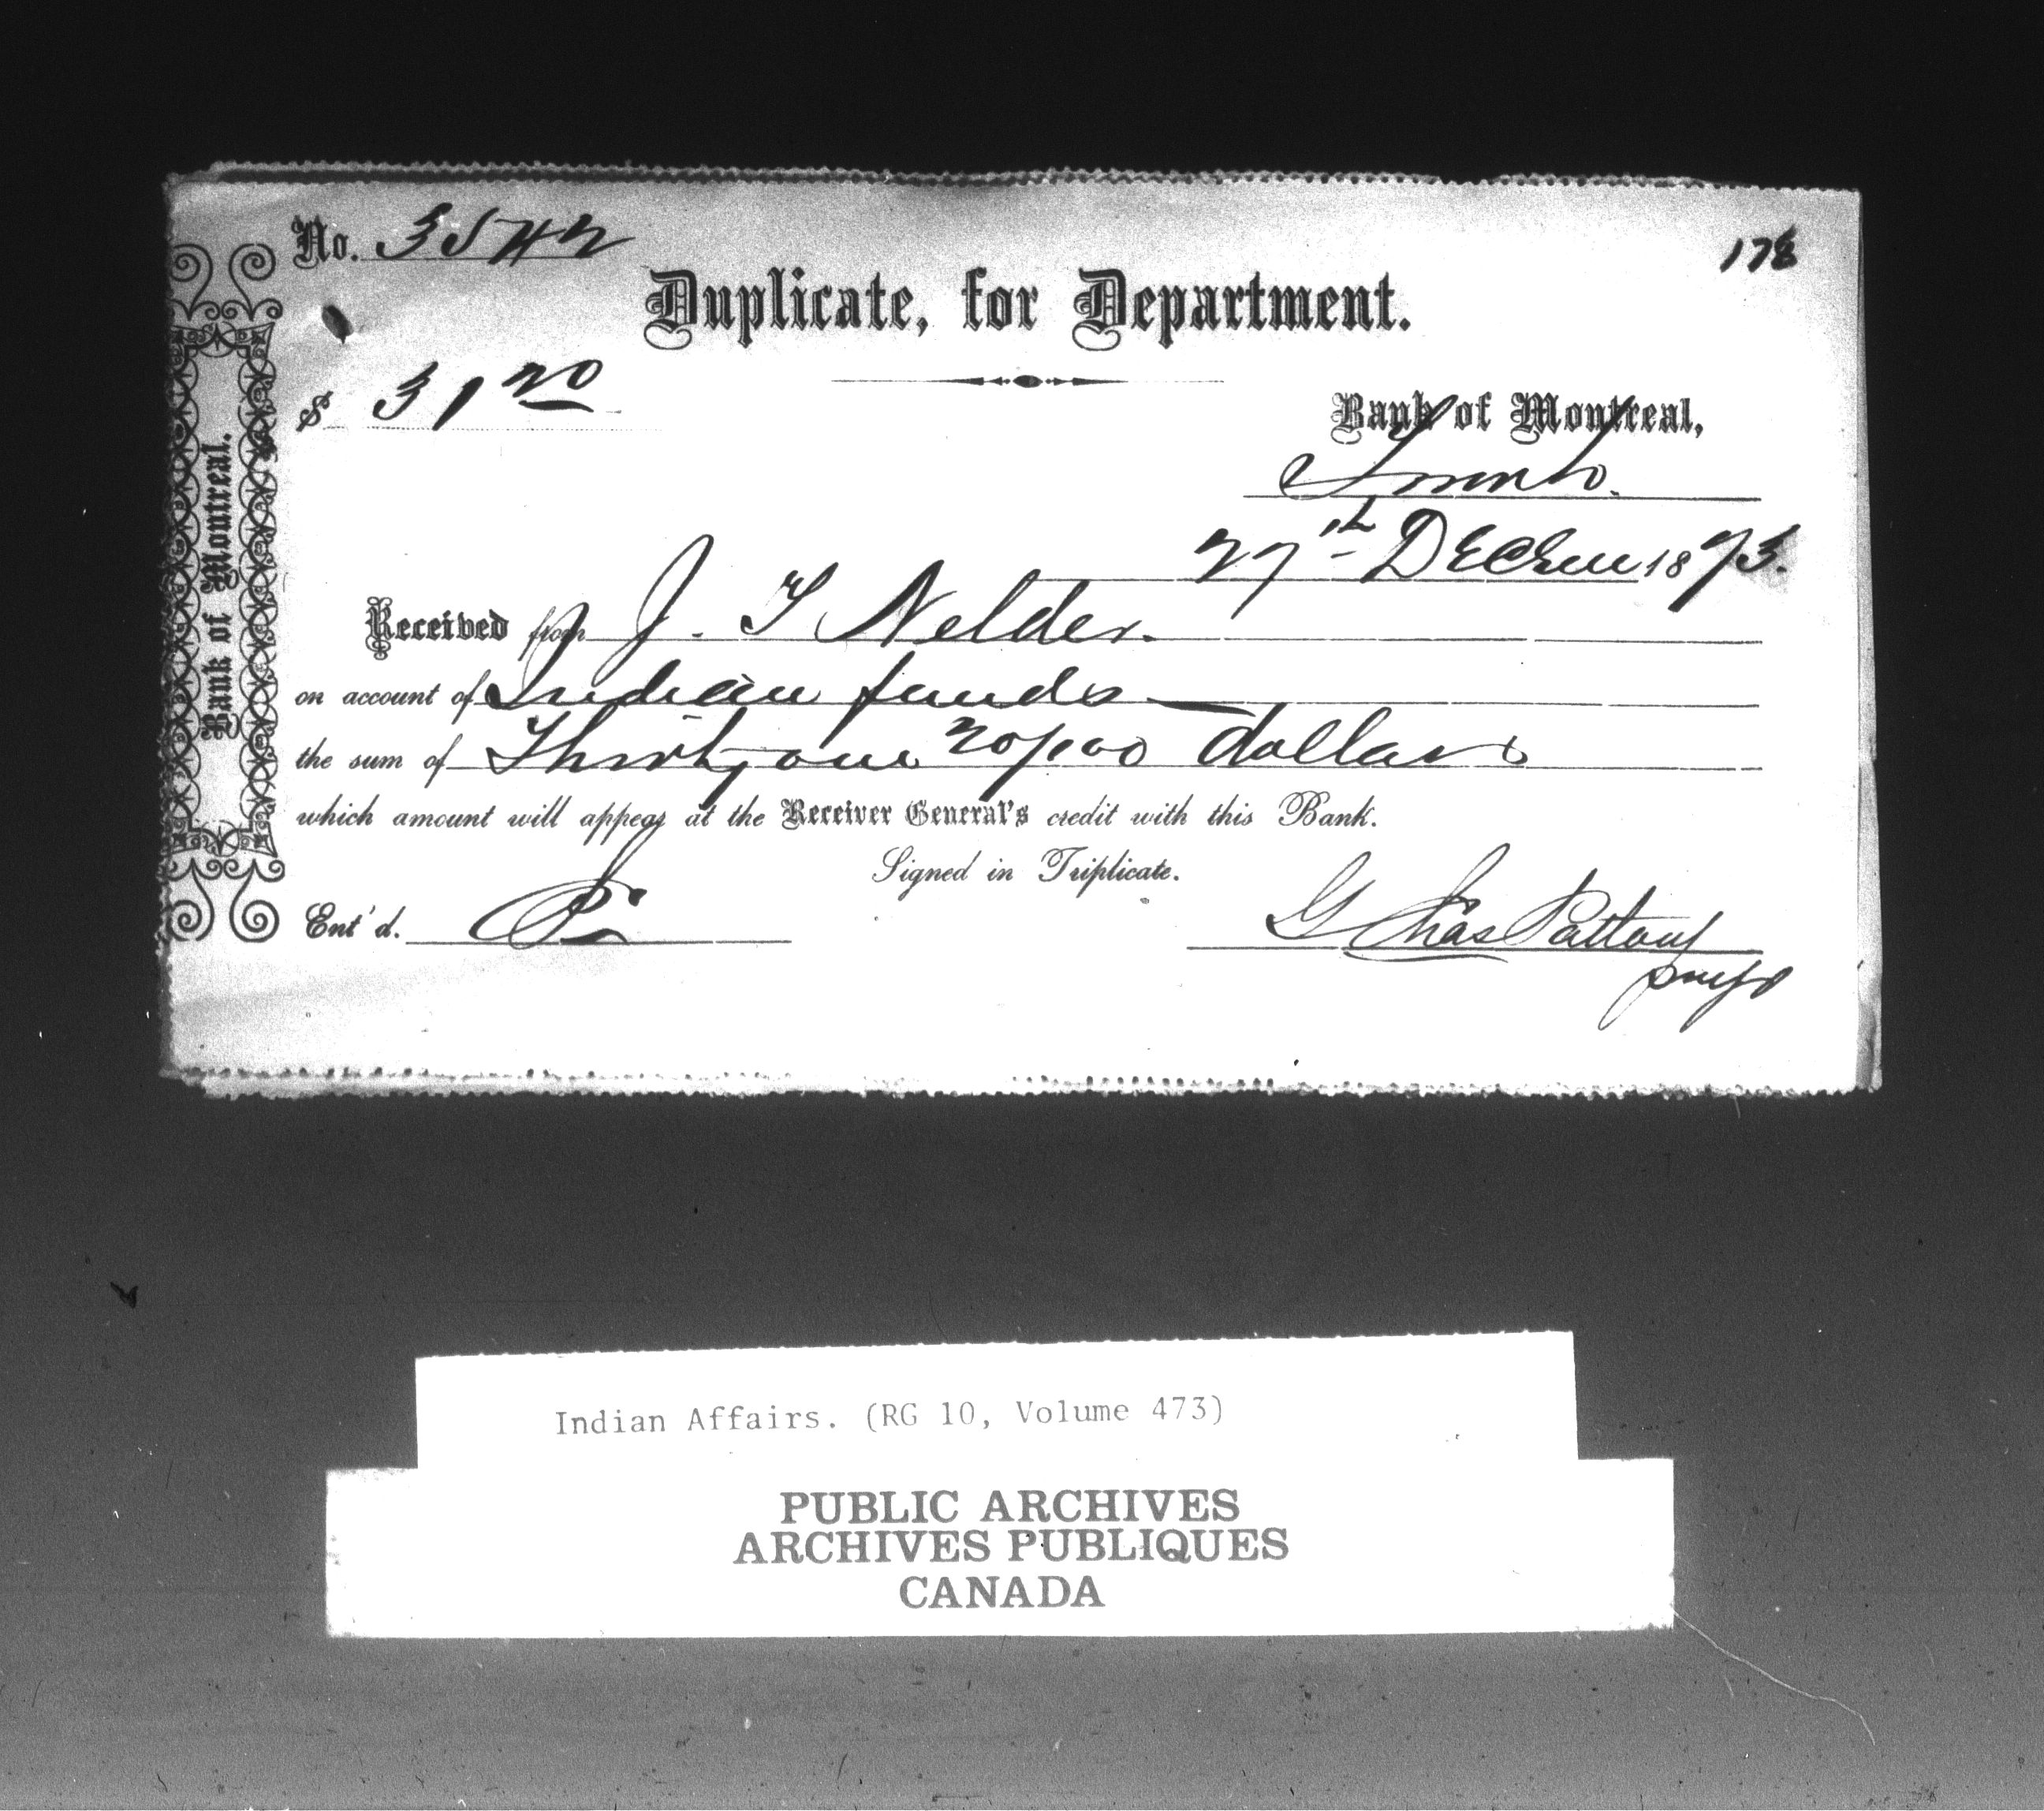 No. 3542
178
Duplicate, for Department.
$ 31 20
Bank of Montreal,
Toronto
27th Decem 1873.
Received from J. T Nelder.
on account of Indian funds
the sum of Thirty one 20/100 dollars
which amount will appear at the Receiver General's credit with this Bank.
Signed in Triplicate.
Ent'd.
Chas
Bank of Montreal.
Indian Affairs. (RG 10, Volume 473)
PUBLIC ARCHIVES
ARCHIVES PUBLIQUES
CANADA